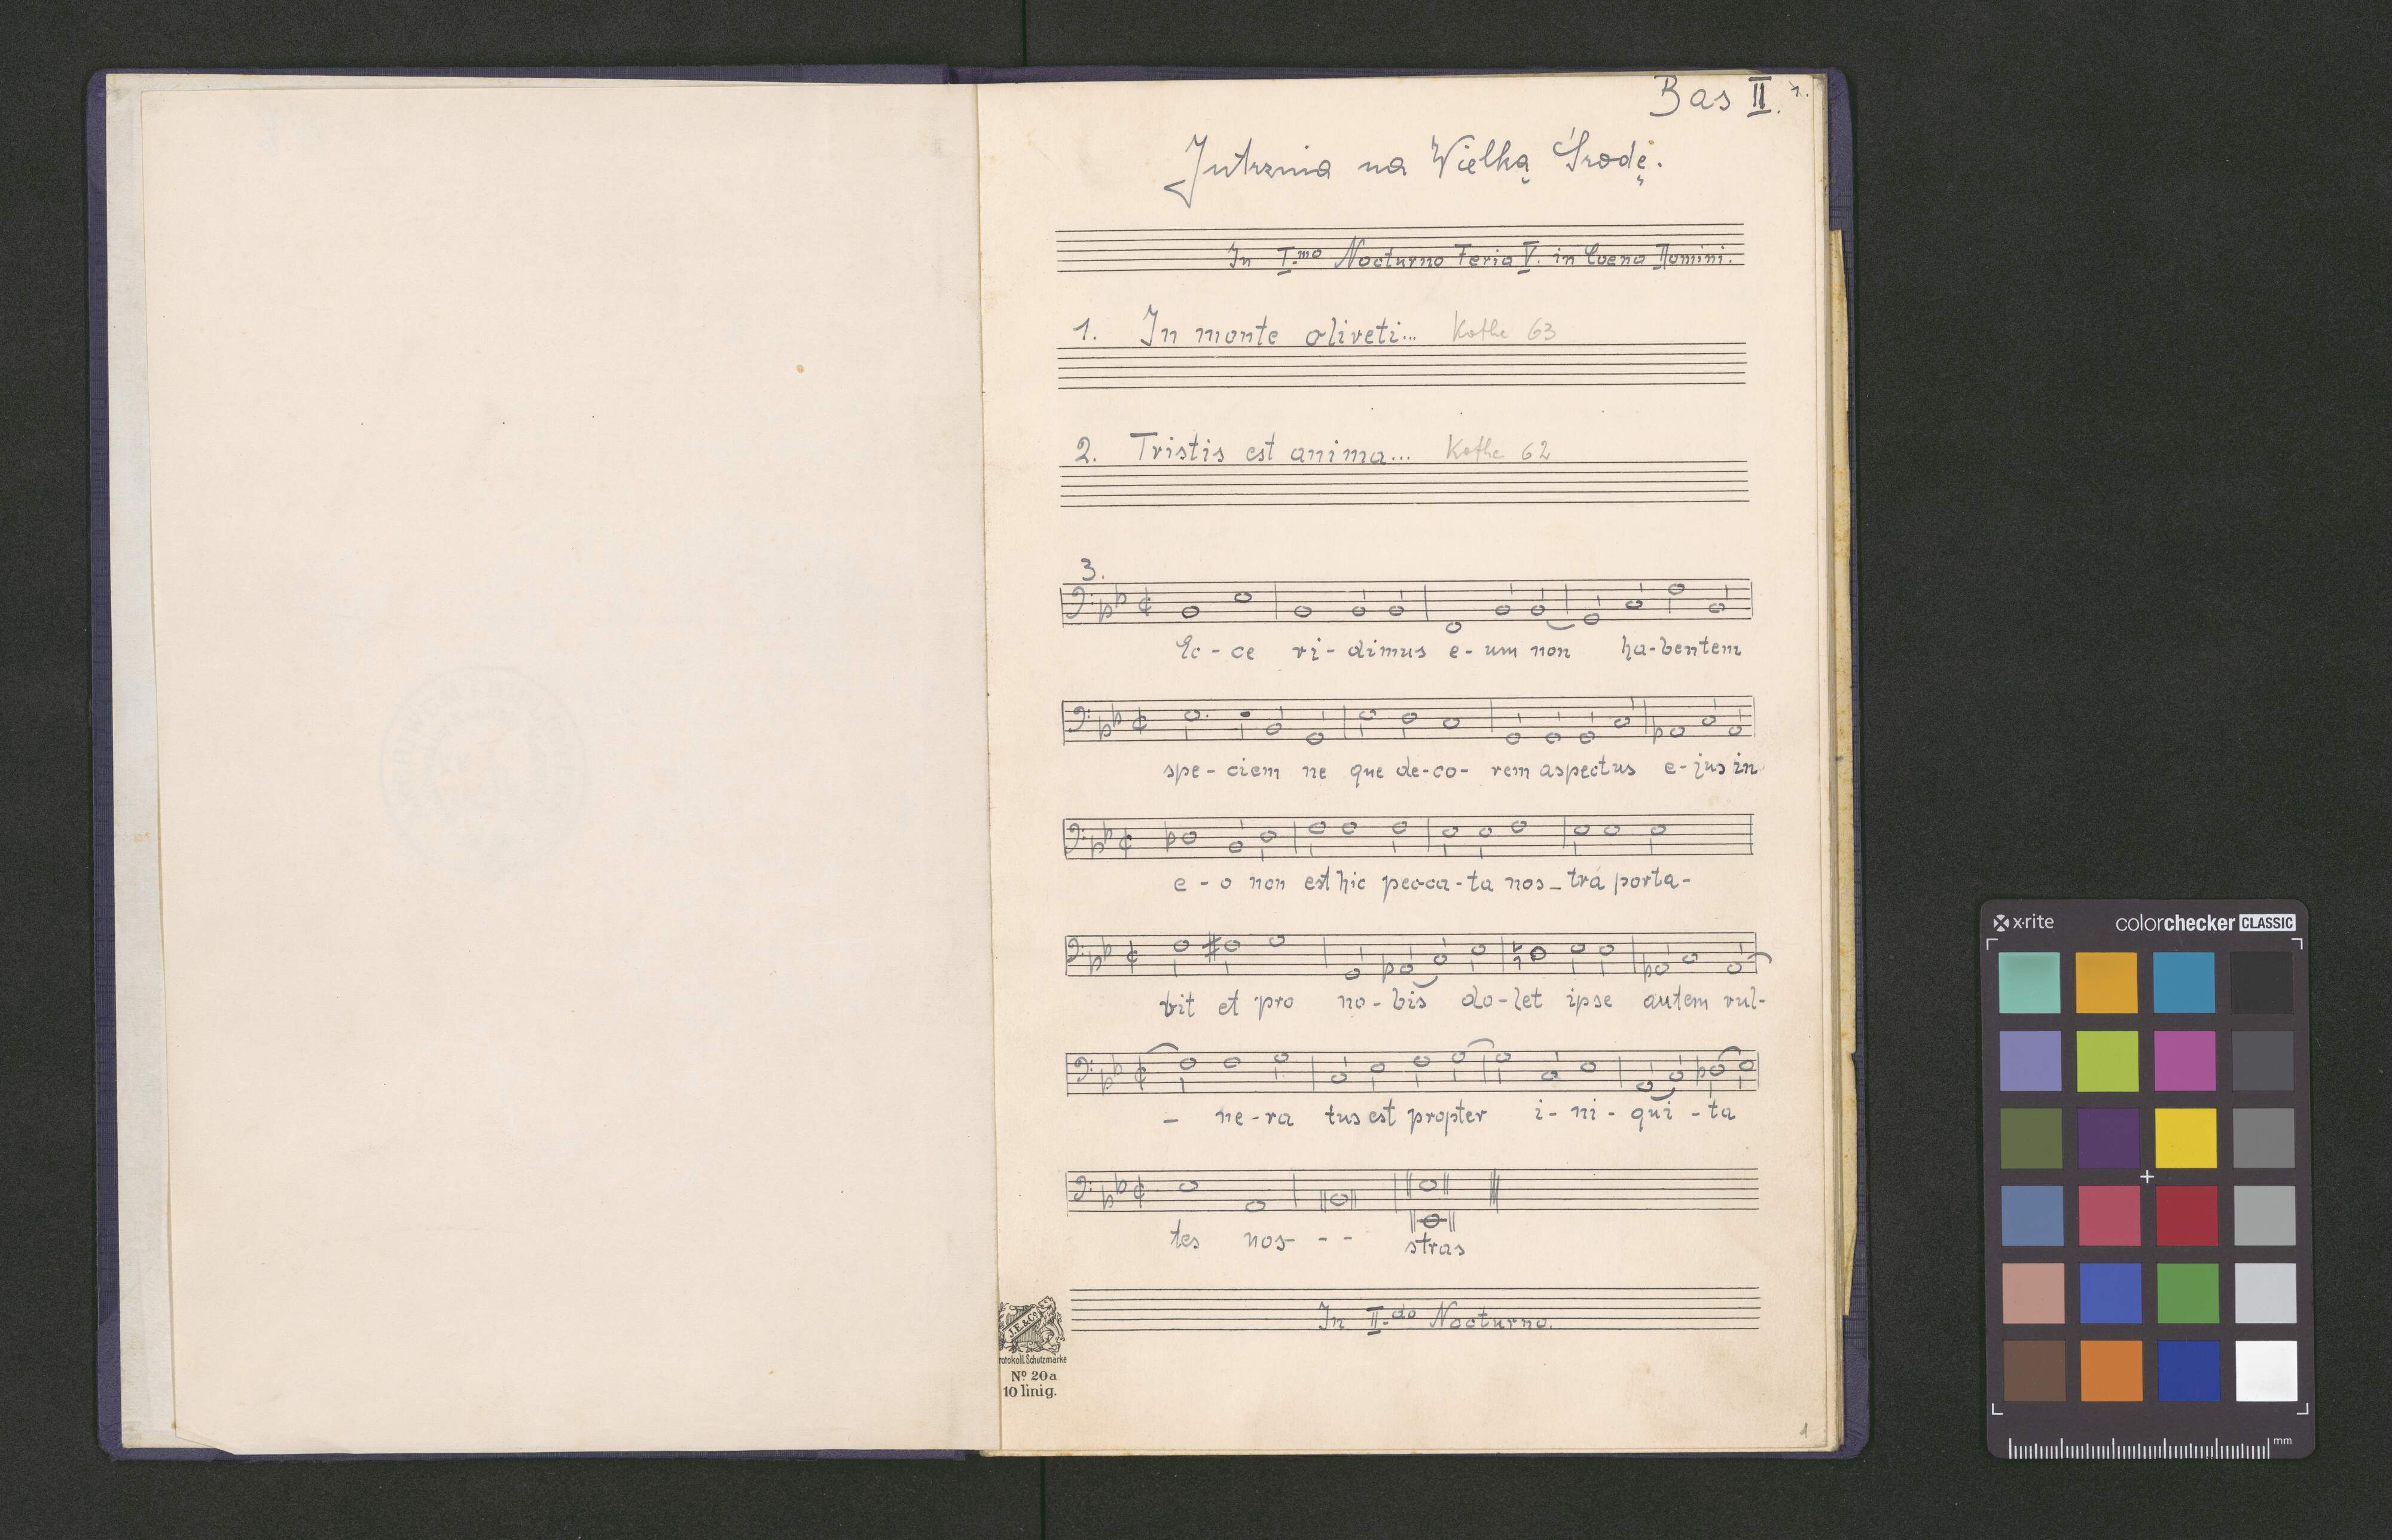 Bas II. 1.
Jutrznia na Wielką Środę.
In I.mo Nocturno Feria V. in Coena Domini.
1. In monte oliveti... Kothe 63
2. Tristis est anima... Kothe 62
3.
Ec - ce vi - dimus e - um non ha - bentem
spe - ciem ne que de - co - rem aspectus e - jus in
e - o non est hic pec-ca - ta nos - tra porta -
vit et pro no - bis do - let ipse autem vul -
- ne - ra tus est propter i - ni - qui - ta
tes nos - - - stras
In II.do Nocturno.
J.E. & Co.
Protokoll. Schutzmarke
No. 20a
10 linig.
1
x-rite colorchecker CLASSIC
mm